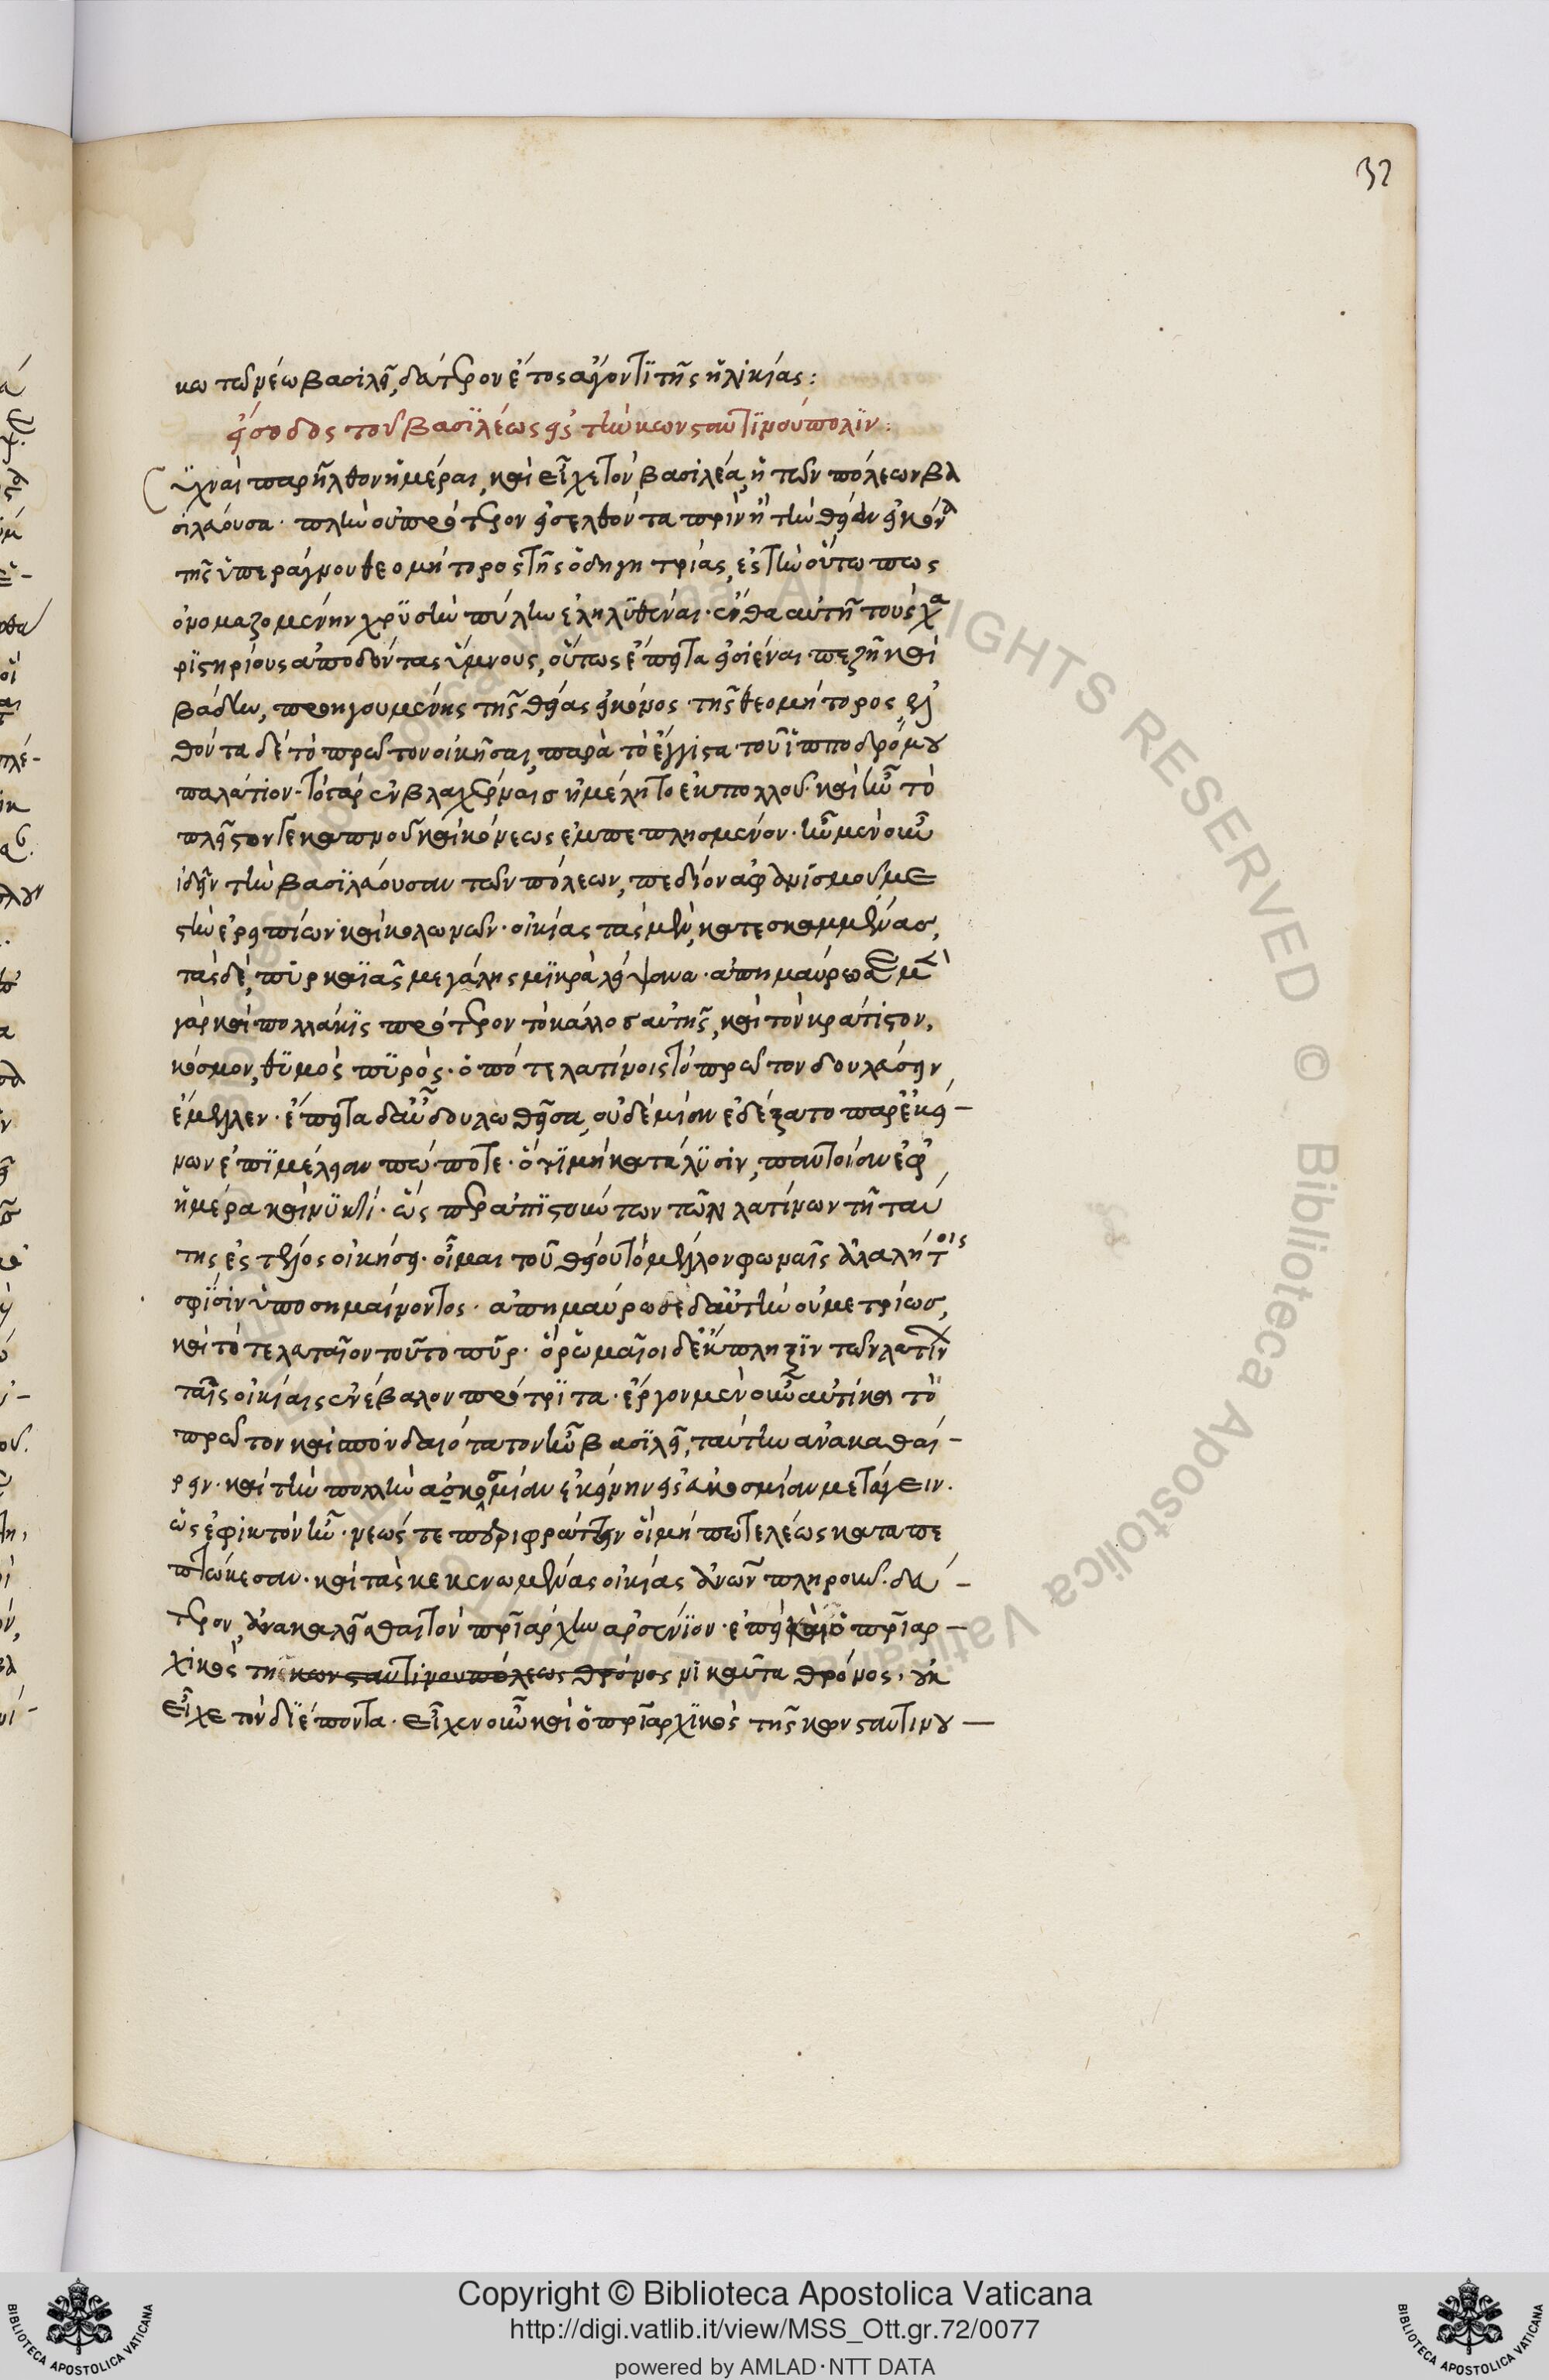 32
κω τῶ νέω βασιλεῖ, δεύτερον ἔτος ἄγοντι τῆς ἡλικίας:
εἴσοδος τοῦ βασιλέως εἰς τὴν κωνσταντινούπολιν:
Συχναὶ παρῆλθον ἡμέραι, καὶ εἶχε τὸν βασιλέα, ἡ τῶν πόλεων βα
σιλεύουσα. πλὴν οὐ πρότερον εἰσελθόντα πρὶν ἢ τὴν θείαν εἰκόνα
τῆς ὑπεράγνου θεομήτορος τῆς ὁδηγητρίας, ἐς τὴν οὕτω πως
ὀνομαζομένην χρυσὴν πύλην ἐληλυθέναι. ἔνθα αὐτῆ τοὺς χα
ριστηρίους ἀποδόντας ὕμνους, οὕτως ἔπειτα εἰσιέναι πεζῆ καὶ
βάδην, προηγουμένης τῆς θείας εἰκόνος τῆς θεομήτορος, ἐλ
θόντα δὲ τὸ πρῶτον οἰκῆσαι, παρὰ τὸ ἔγγιστα τοῦ ἱπποδρόμου
παλάτιον. τὸ γὰρ ἐν βλαχέρναισ ἠμέλητο ἐκ πολλοῦ. καὶ ἦν τὸ
πλεῖστον τε καπνοῦ καὶ κόνεως ἐμπεπλησμένον. ἦν μὲν οὖν
ἰδεῖν τὴν βασιλεύουσαν τῶν πόλεων, πεδίον ἀφανισμοῦ με
στὴν ἐρειπίων καὶ κολωνῶν. οἰκίας τὰς μὲν, κατεσκαμμένασ,
τὰς δὲ, πυρκαϊᾶς μεγάλης μικρὰ λείψανα. ἀπημαύρωσε μὲν
γὰρ καὶ πολλάκις πρότερον τὸ κάλλοσ αὐτῆς, καὶ τὸν κράτιστον,
κόσμον, θυμὸς πυρὸς. ὁπότε λατίνοις τὸ πρῶτον δουλεύσειν
ἔμελλεν. ἔπειτα δ' αὖ δουλωθεῖσα, οὐδεμίαν ἐδέξατο παρ' ἐκεί-
νων ἐπιμέλειαν πώποτε. ὅτι μὴ κατάλυσιν, παντοίαν ἐφ'
ἡμέρα καὶ νυκτί. ὡς περ ἀπιστούντων τῶν λατίνων τῆ ταύ
της ἐς τέλος οἰκήσει. οἶμαι τοῦ θείου τὸ μέλλον φωναῖς ἀλαλήτοις
σφίσιν ὑποσημαίνοντος. ἀπημαύρωσε δ' αὐτὴν οὐ μετρίωσ,
καὶ τὸ τελευταῖον τοῦτο πῦρ. ὃ ῥωμαῖοι δι' ἔκπληξιν τῶν λατίνων
ταῖς οἰκίαις ἐνέβαλον πρότριτα. ἔργον μὲν οὖν αὐτίκα τὸ
πρῶτον καὶ σπουδαιότατον ἦν βασιλεῖ, ταύτην ἀνακαθαί-
ρειν. καὶ τὴν πολλὴν ἀκοσμίαν ἐκείνην εἰς εὐκοσμίαν μετάγειν.
ὡς ἐφικτὸν ἦν. νεώς τε περιφράττειν οἳ μή πω τελέως καταπε
πτώκεσαν. καὶ τὰς κεκενωμένας οἰκίας ἀνων πληροῦν. δεύ-
τερον, ἀνακαλεῖσθαι τὸν πριάρχην ἀρσένιον. ἐπεὶ καὶ ὁ πριαρ-
χικὸς τῆς κωνσταντινουπόλεως θρόνος νικαῦτα θρόνος, οὐκ
εἶχε τὸν διέποντα. εἶχεν οὖν καὶ ὁ πριαρχικὸς τῆς κωνσταντινου-
Copyright © Biblioteca Apostolica Vaticana
http://digi.vatlib.it/view/MSS_Ott.gr.72/0077
powered by AMLAD·NTT DATA